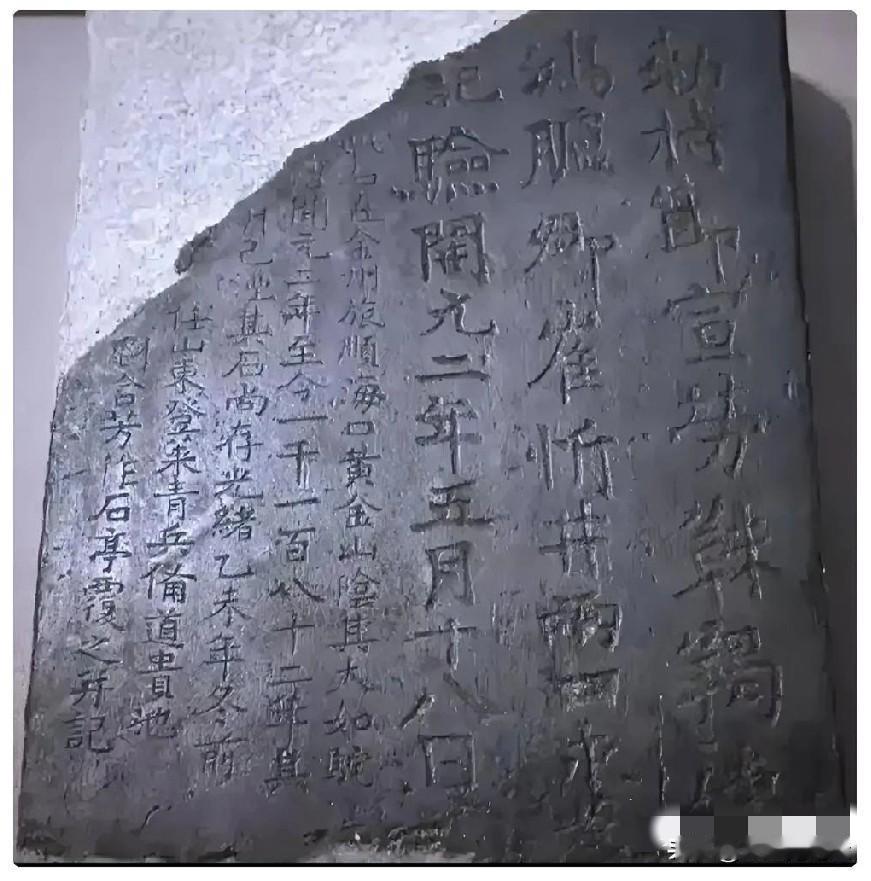 勅持節宣勞靺鞨使
鴻臚卿崔忻井兩口永為
記驗開元二年五月十八日
此石在金州旅順海口黃金山陰其大如駝
開元二年至今一千一百八十二年其
井已湮其石尚存光緒乙未年冬前
任山東登萊青兵備道貴池
劉含芳作石亭覆之并記